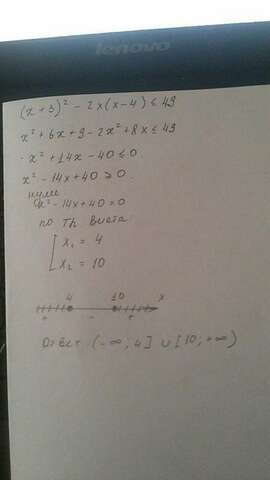 lenovo
(x+3)² - 2x(x-4) ≤ 49
x² + 6x + 9 - 2x² + 8x ≤ 49
-x² + 14x - 40 ≤ 0
x² - 14x + 40 ≥ 0
нули:
x² - 14x + 40 = 0
по Th Виета
[ x₁ = 4
x₂ = 10
4 10 x
+ - +
Ответ (-∞; 4] ∪ [10; +∞)